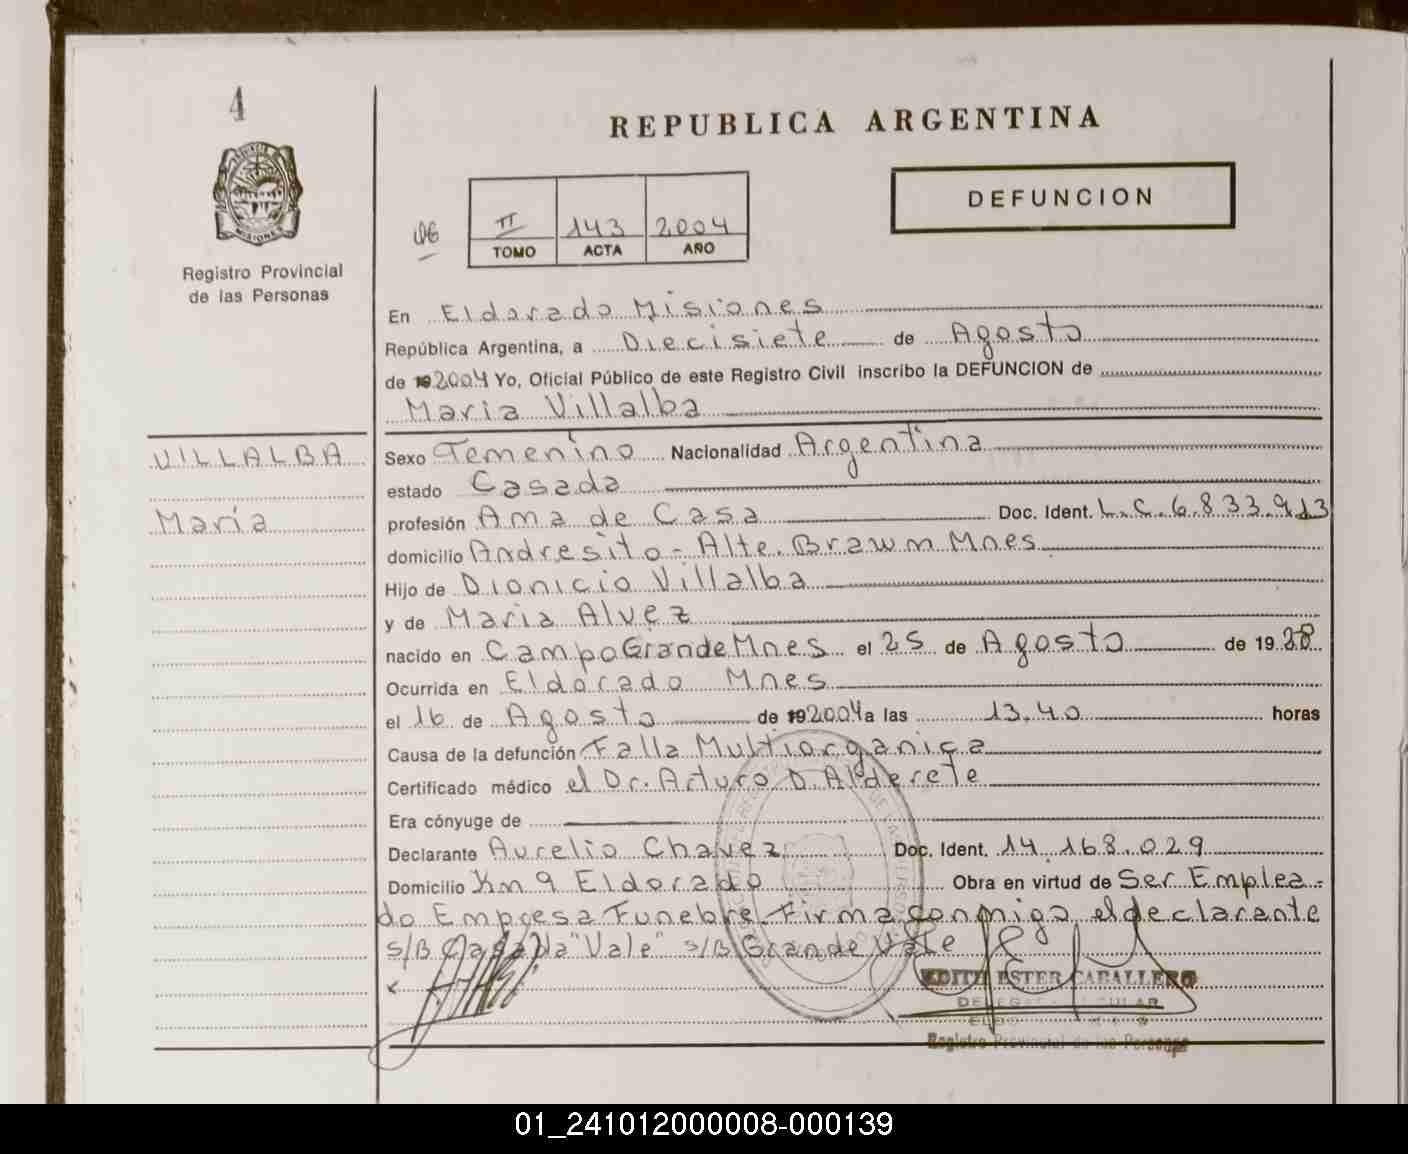 4
REPUBLICA ARGENTINA
DEFUNCION
II 143 2004
TOMO ACTA AÑO
Registro Provincial
de las Personas
En Eldorado Misiones
República Argentina, a Diecisiete de Agosto
de 192004 Yo, Oficial Público de este Registro Civil inscribo la DEFUNCION de
Maria Villalba
VILLALBA
María
Sexo Femenino Nacionalidad Argentina
estado Casada
profesión Ama de Casa Doc. Ident. L.C. 6.833.913
domicilio Andresito - Alte. Brawn Mnes
Hijo de Dionicio Villalba
y de Maria Alvez
nacido en Campo Grande Mnes el 25 de Agosto de 19 28
Ocurrida en Eldorado Mnes
el 16 de Agosto de 192004 a las 13.40 horas
Causa de la defunción Falla Multiorganica
Certificado médico el Dr. Arturo D. Alderete
Era cónyuge de
Declarante Aurelio Chavez Doc. Ident. 14.168.029
Domicilio Km 9 Eldorado Obra en virtud de Ser Emplea-
do Empresa Funebre. Firma conmigo el declarante
s/B Casada "Vale" s/B Grande Vale
EDITH ESTER CABALLERO
Registro Provincial de las Personas
01_241012000008-000139